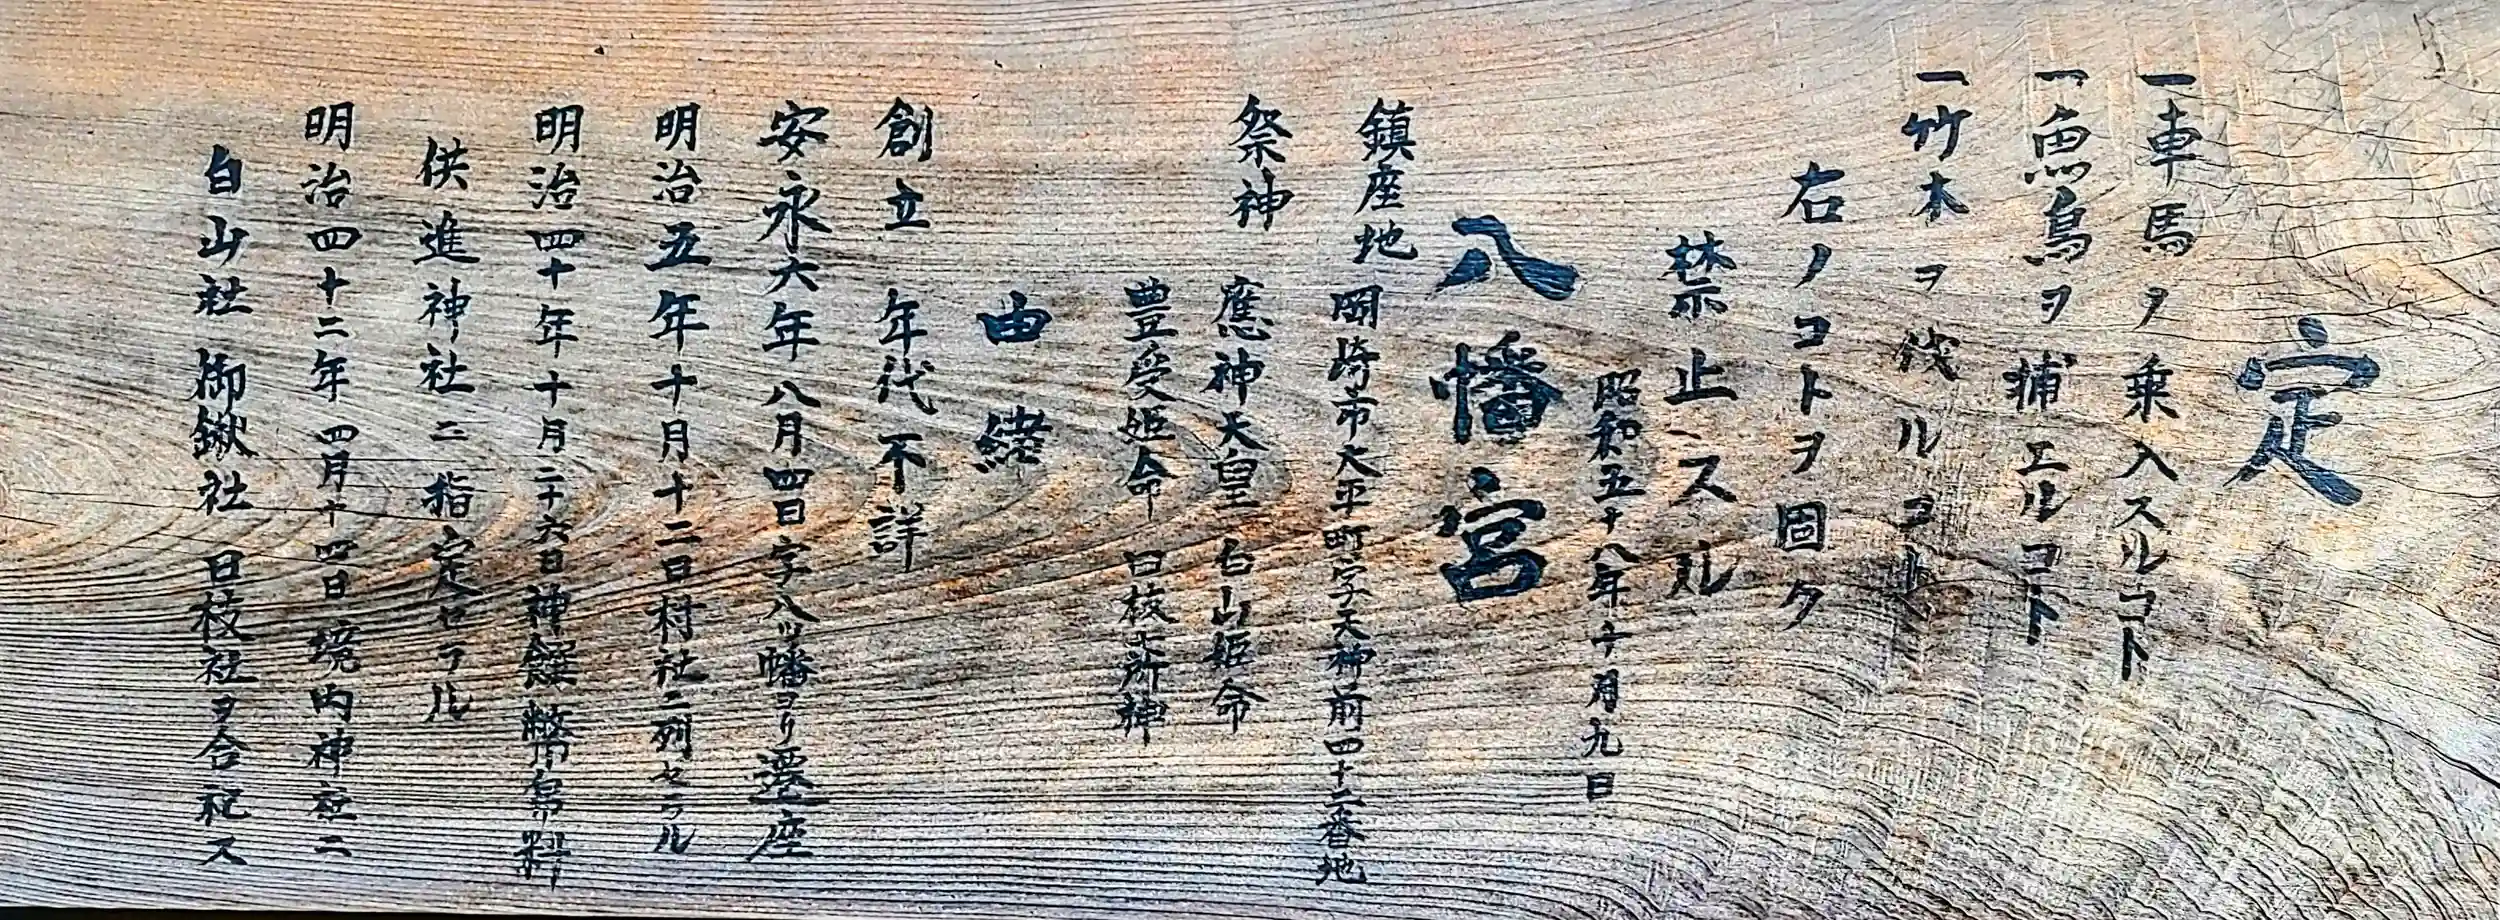 定
一車馬ヲ乗入スルコト
一魚鳥ヲ捕エルコト
一竹木ヲ伐ルコト
右ノコトヲ固ク
禁止スル
昭和五十八年十月九日
八幡宮
鎮座地 岡崎市大平町字天神前四十二番地
祭神 應神天皇 白山姫命
豊受姫命 日枝七所神
由緒
創立 年代不詳
安永六年八月四日字八ッ幡ヨリ遷座
明治五年十月十二日村社ニ列セラル
明治四十年十月二十六日神饌幣帛料
供進神社ニ指定セラル
明治四十二年四月十四日境内神社ニ
白山社 御鍬社 日枝社ヲ合祀ス